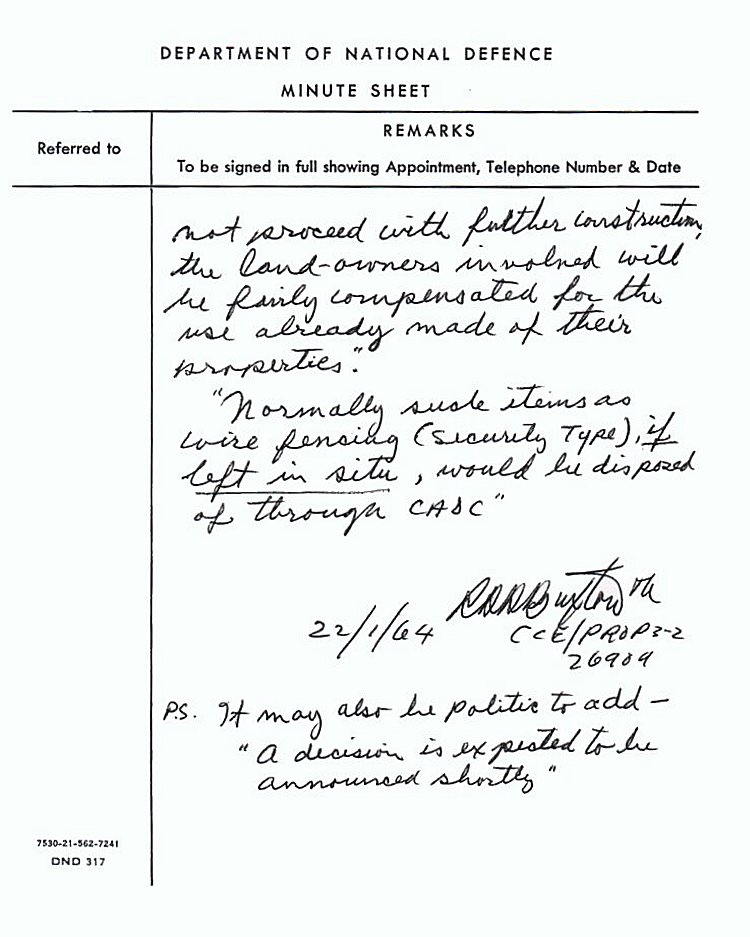 DEPARTMENT OF NATIONAL DEFENCE
MINUTE SHEET
Referred to
REMARKS
To be signed in full showing Appointment, Telephone Number & Date
not proceed with further construction,
the land-owners involved will
be fairly compensated for the
use already made of their
properties."
"Normally such items as
wire fencing (Security Type), if
left in situ, would be disposed
of through CADC"
Buxton
22/1/64
CCE/PROP 3-2
26909
P.S. It may also be politic to add —
"A decision is expected to be
announced shortly"
7530-21-562-7241
DND 317